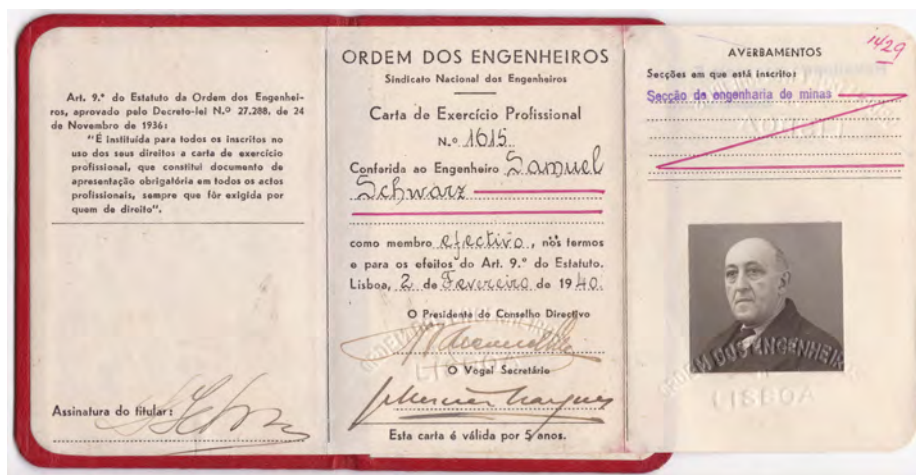 Art. 9.º do Estatuto da Ordem dos Engenhei-
ros, aprovado pelo Decreto-lei N.º 27.288, de 24
de Novembro de 1936:
"É instituída para todos os inscritos no
uso dos seus direitos a carta de exercício
profissional, que constitui documento de
apresentação obrigatória em todos os actos
profissionais, sempre que fôr exigida por
quem de direito".
Assinatura do titular:
ORDEM DOS ENGENHEIROS
Sindicato Nacional dos Engenheiros
Carta de Exercício Profissional
N.º 1615
Conferida ao Engenheiro Samuel
Schwarz
como membro efectivo, nos termos
e para os efeitos do Art. 9.º do Estatuto.
Lisboa, 2 de Fevereiro de 1940
O Presidente do Conselho Directivo
O Vogal Secretário
Esta carta é válida por 5 anos.
1429
AVERBAMENTOS
Secções em que está inscrito:
Secção de engenharia de minas
ORDEM DOS ENGENHEIR
LISBOA